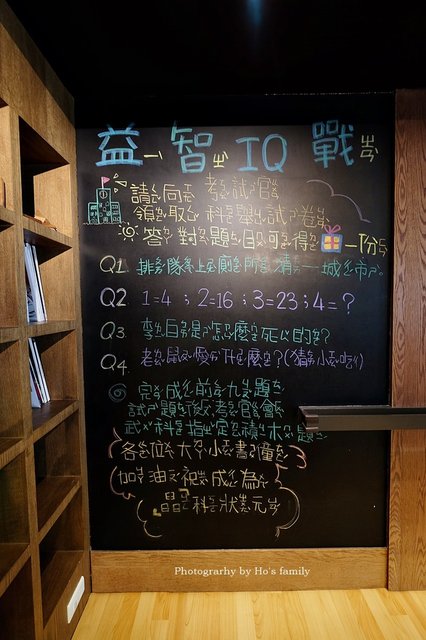 益智IQ戰
請向考試官
領取科舉試卷
答對題目可得一份
Q1 排隊上廁所 猜一城市。
Q2 1=4；2=16；3=23；4=？
Q3 李白是怎麼死的？
Q4 老鼠愛什麼？(猜小吃)
完成前九題
試題後考官會
武科指定積木題
各位大小書僮
加油祝成為
晶科狀元
Photograrhy by Ho's family